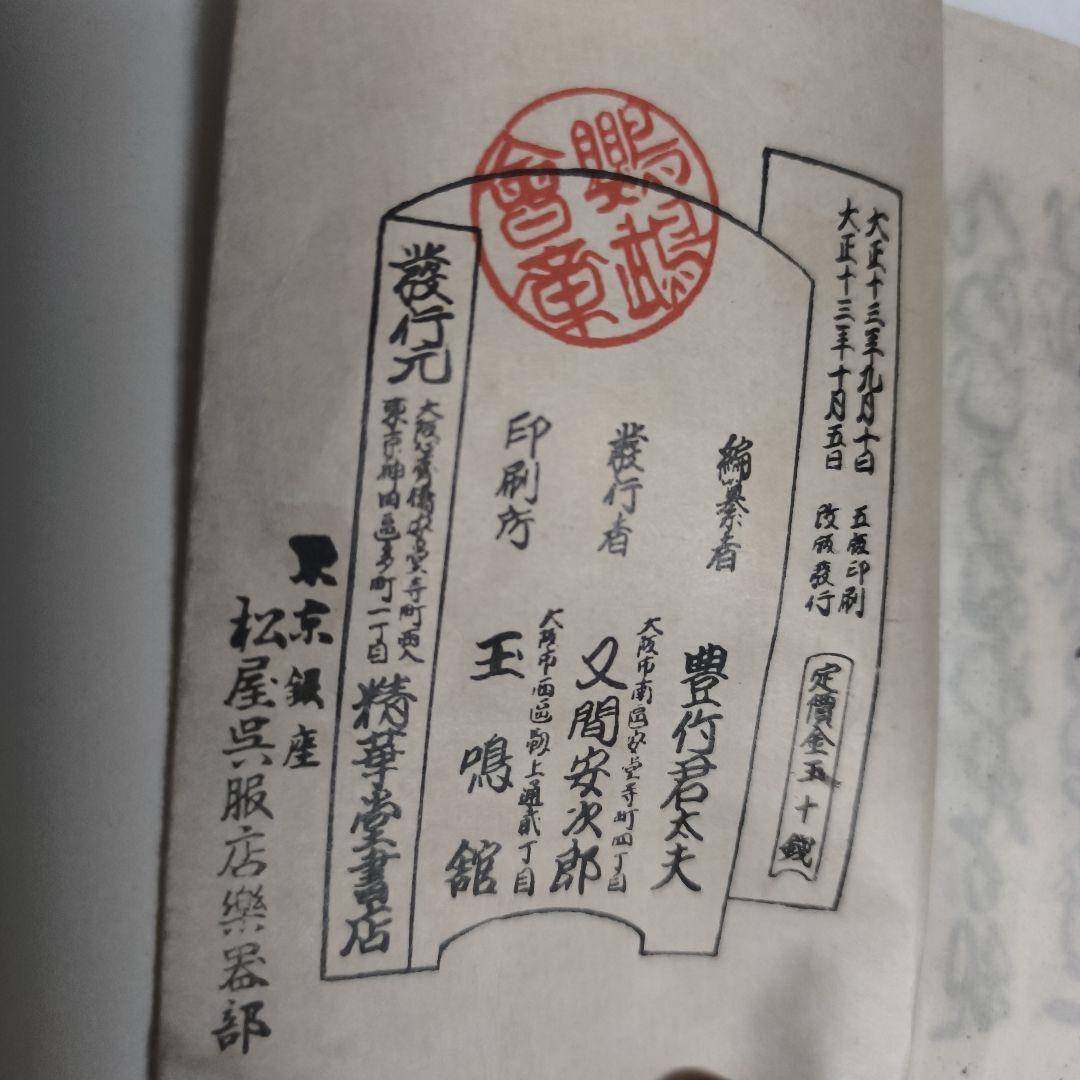 大正十三年九月十日 五版印刷
大正十三年十月五日 改版發行
定價金五十錢
編纂者 豊竹君太夫
大阪市南區安堂寺町四丁目
發行者 又間安次郎
大阪市西區靱上通貳丁目
印刷所 玉鳴館
發行元
大阪心齋橋安堂寺町西入
東京神田區多町一丁目
精華堂書店
東京銀座
松屋呉服店樂器部